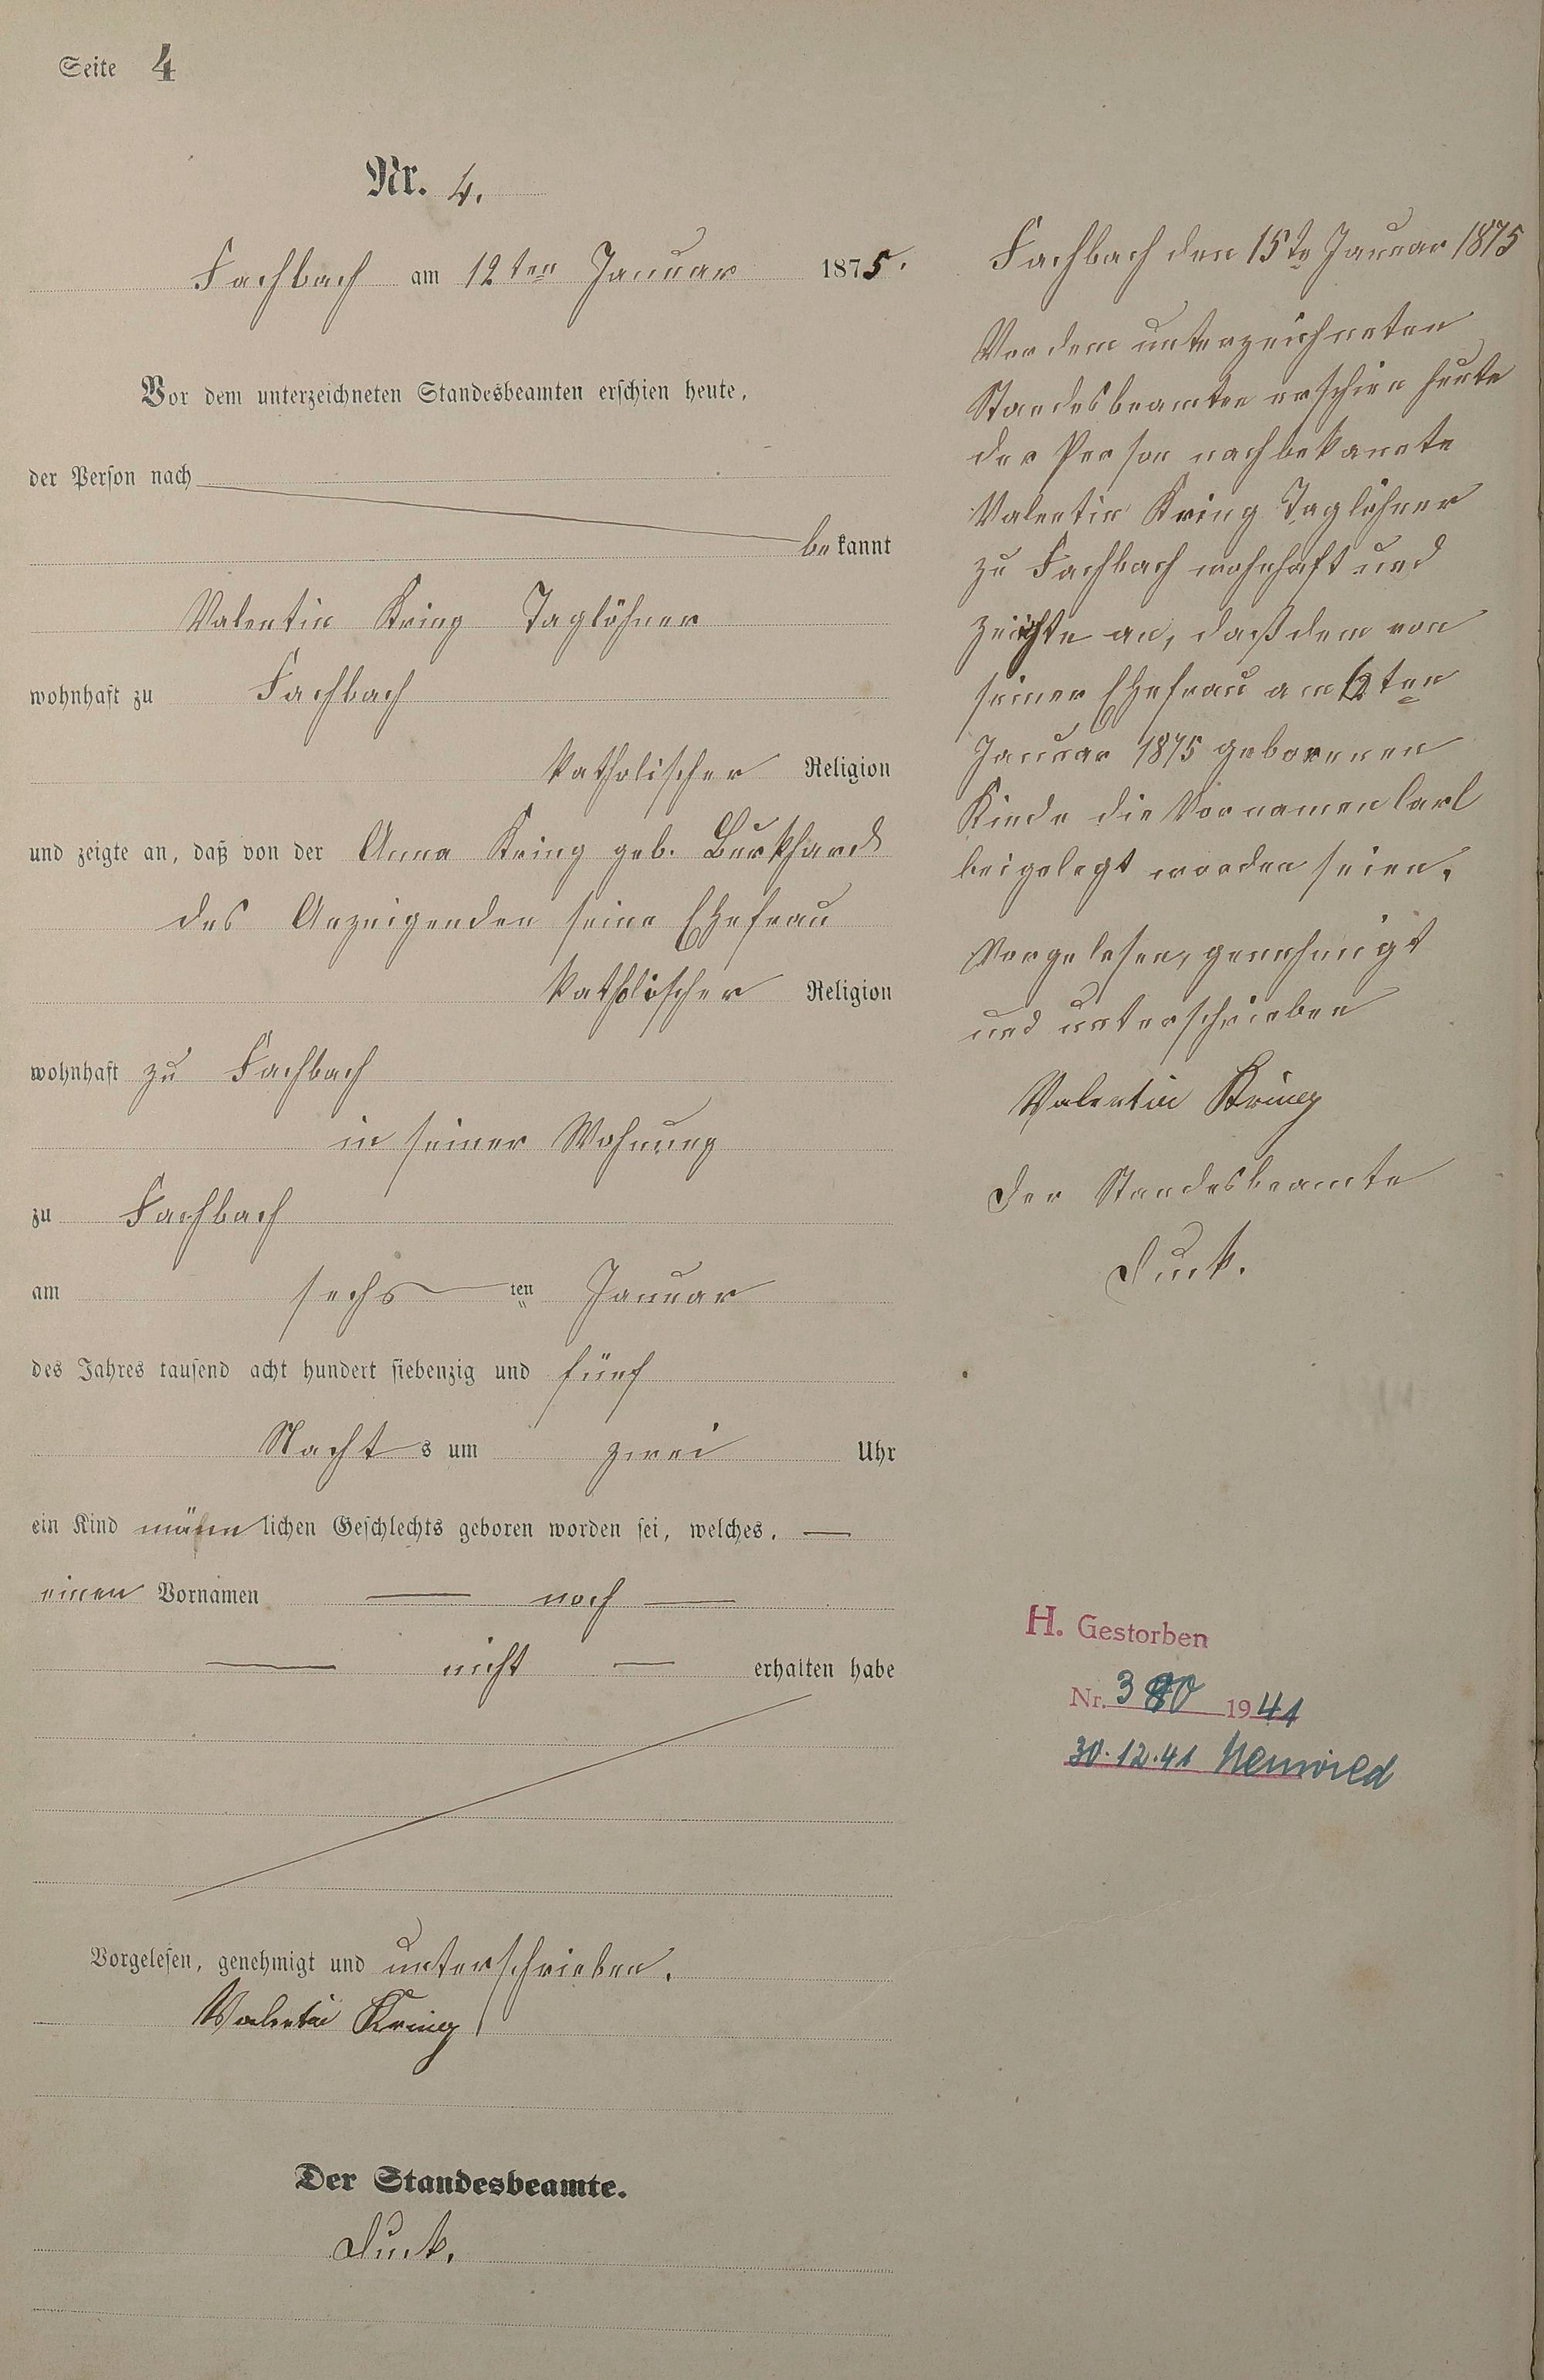 Seite 4
Nr. 4.
Fachbach am 12ten Januar 1875.
Vor dem unterzeichneten Standesbeamten erschien heute,
der Person nach
bekannt
Valentin Kring Taglöhner
wohnhaft zu Fachbach
katholischer Religion
und zeigte an, daß von der Anna Kring geb. Burkhard
des Anzeigenden seine Ehefrau
katholischer Religion
wohnhaft zu Fachbach
in seiner Wohnung
zu Fachbach
am sechs ten Januar
des Jahres tausend acht hundert siebenzig und fünf
Nachts um zwei Uhr
ein Kind männlichen Geschlechts geboren worden sei, welches, —
einen Vornamen — noch —
— nicht — erhalten habe
Vorgelesen, genehmigt und unterschrieben.
Valentin Kring
Der Standesbeamte.
Fachbach den 15te Januar 1875
Vor dem unterzeichneten
Standesbeamten erschien heute
der Person nach bekannte
Valentin Kring Taglöhner
zu Fachbach wohnhaft und
zeigte an, daß dem von
seiner Ehefrau am ten
Januar 1875 geborenen
Kinde die Vornamen Carl
beigelegt worden seien.
Vorgelesen, genehmigt
und unterschrieben
Valentin Kring
Der Standesbeamte
H. Gestorben
Nr. 380 1941
30.12.41 Neuwied